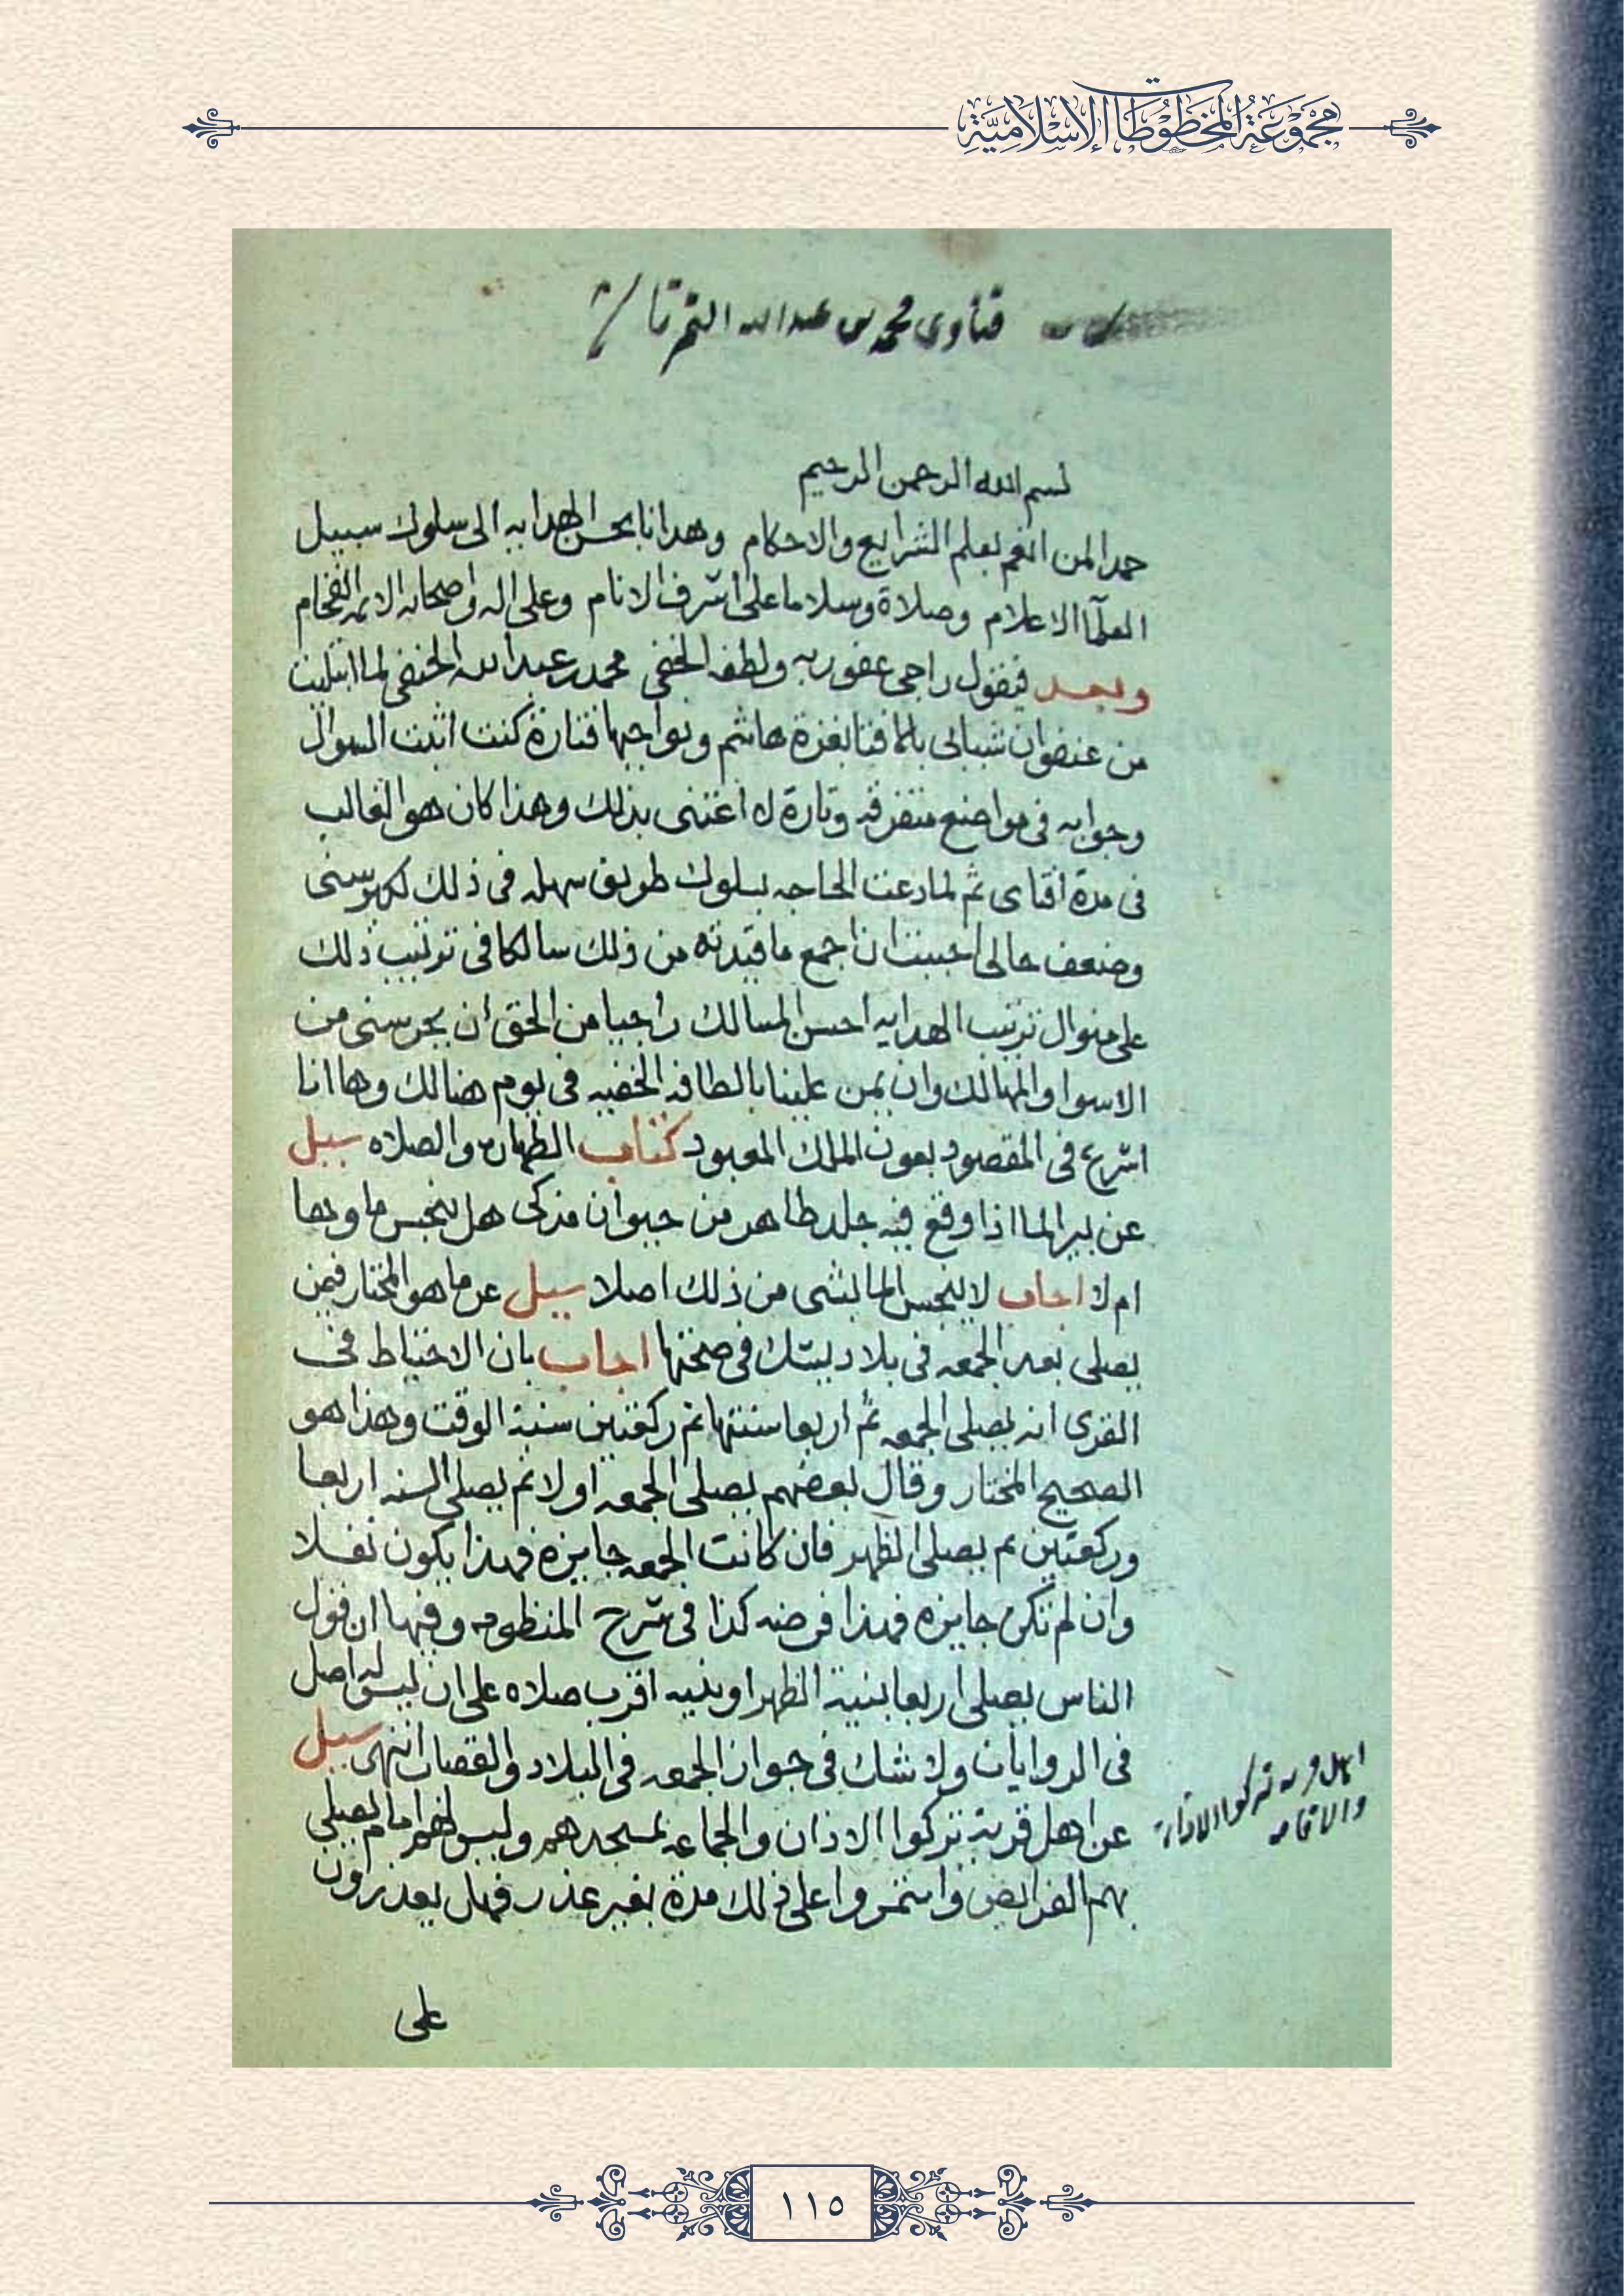 مجموعة المخطوطات الإسلامية
فتاوى محمد بن عبد الله التمرتاشي
بسم الله الرحمن الرحيم
حمدا لمن انعم بعلم الشرايع والاحكام وهدانا بحسن الهدايه الى سلوك سبيل
العلمآ الاعلام وصلاة وسلاما على اشرف الانام وعلى اله واصحابه الائمه الفخام
وبعد فيقول راجى عفو ربه ولطفه الخفى محمد بن عبد الله الحنفى لما ابتليت
من عنفوان شبابى بالافتا بغزة هاشم ونواحيها فتارة كنت اثبت السوال
وجوابه فى مواضع متفرقه وتارة لا اعتنى بذلك وهذا كان هو الغالب
فى مدة افتاى ثم لما دعت الحاجه بسلوك طريق سهله فى ذلك لكبر سنى
وضعف حالى احببت ان اجمع ما قيدته من ذلك سالكا فى ترتيب ذلك
على منوال ترتيب الهدايه احسن المسالك راجيا من الحق ان يحرسنى من
الاسوا والمهالك وان يمن علينا بالطافه الخفيه فى يوم هنالك وها انا
اشرع فى المقصود بعون الملك المعبود كتاب الطهارة والصلاه سيل
عن بير الما اذا وقع فيه جلد طاهر من حيوان مذكى هل ينجس ماوها
ام لا اجاب لا ينجس الما بشى من ذلك اصلا سيل عن ما هو المختار فيمن
يصلى بعد الجمعه فى بلاد يشك فى صحتها اجاب بان الاحتياط فى
القرى انه يصلى الجمعه ثم اربعا سنتها ثم ركعتين سنة الوقت وهذا هو
الصحيح المختار وقال بعضهم يصلى الجمعه اولا ثم يصلى السنه اربعا
وركعتين ثم يصلى الظهر فان كانت الجمعه جايزه فهذا يكون نفلا
وان لم تكن جايزه فهذا فرضه كذا فى شرح المنظومه وفيها ان قول
الناس يصلى اربعا بنية الظهر او بنيه اقرب صلاه على ان ليس له اصل
فى الروايات ولا شك فى جواز الجمعه فى البلاد والقصبات انتهى سيل
عن اهل قرية تركوا الاذان والجماعه بمسجدهم وليس لهم امام يصلى
بهم الفرايض واستمروا على ذلك مدة بغير عذر فهل يعذرون
اهل قريه تركوا الاذان
والاقامه
على
١١٥